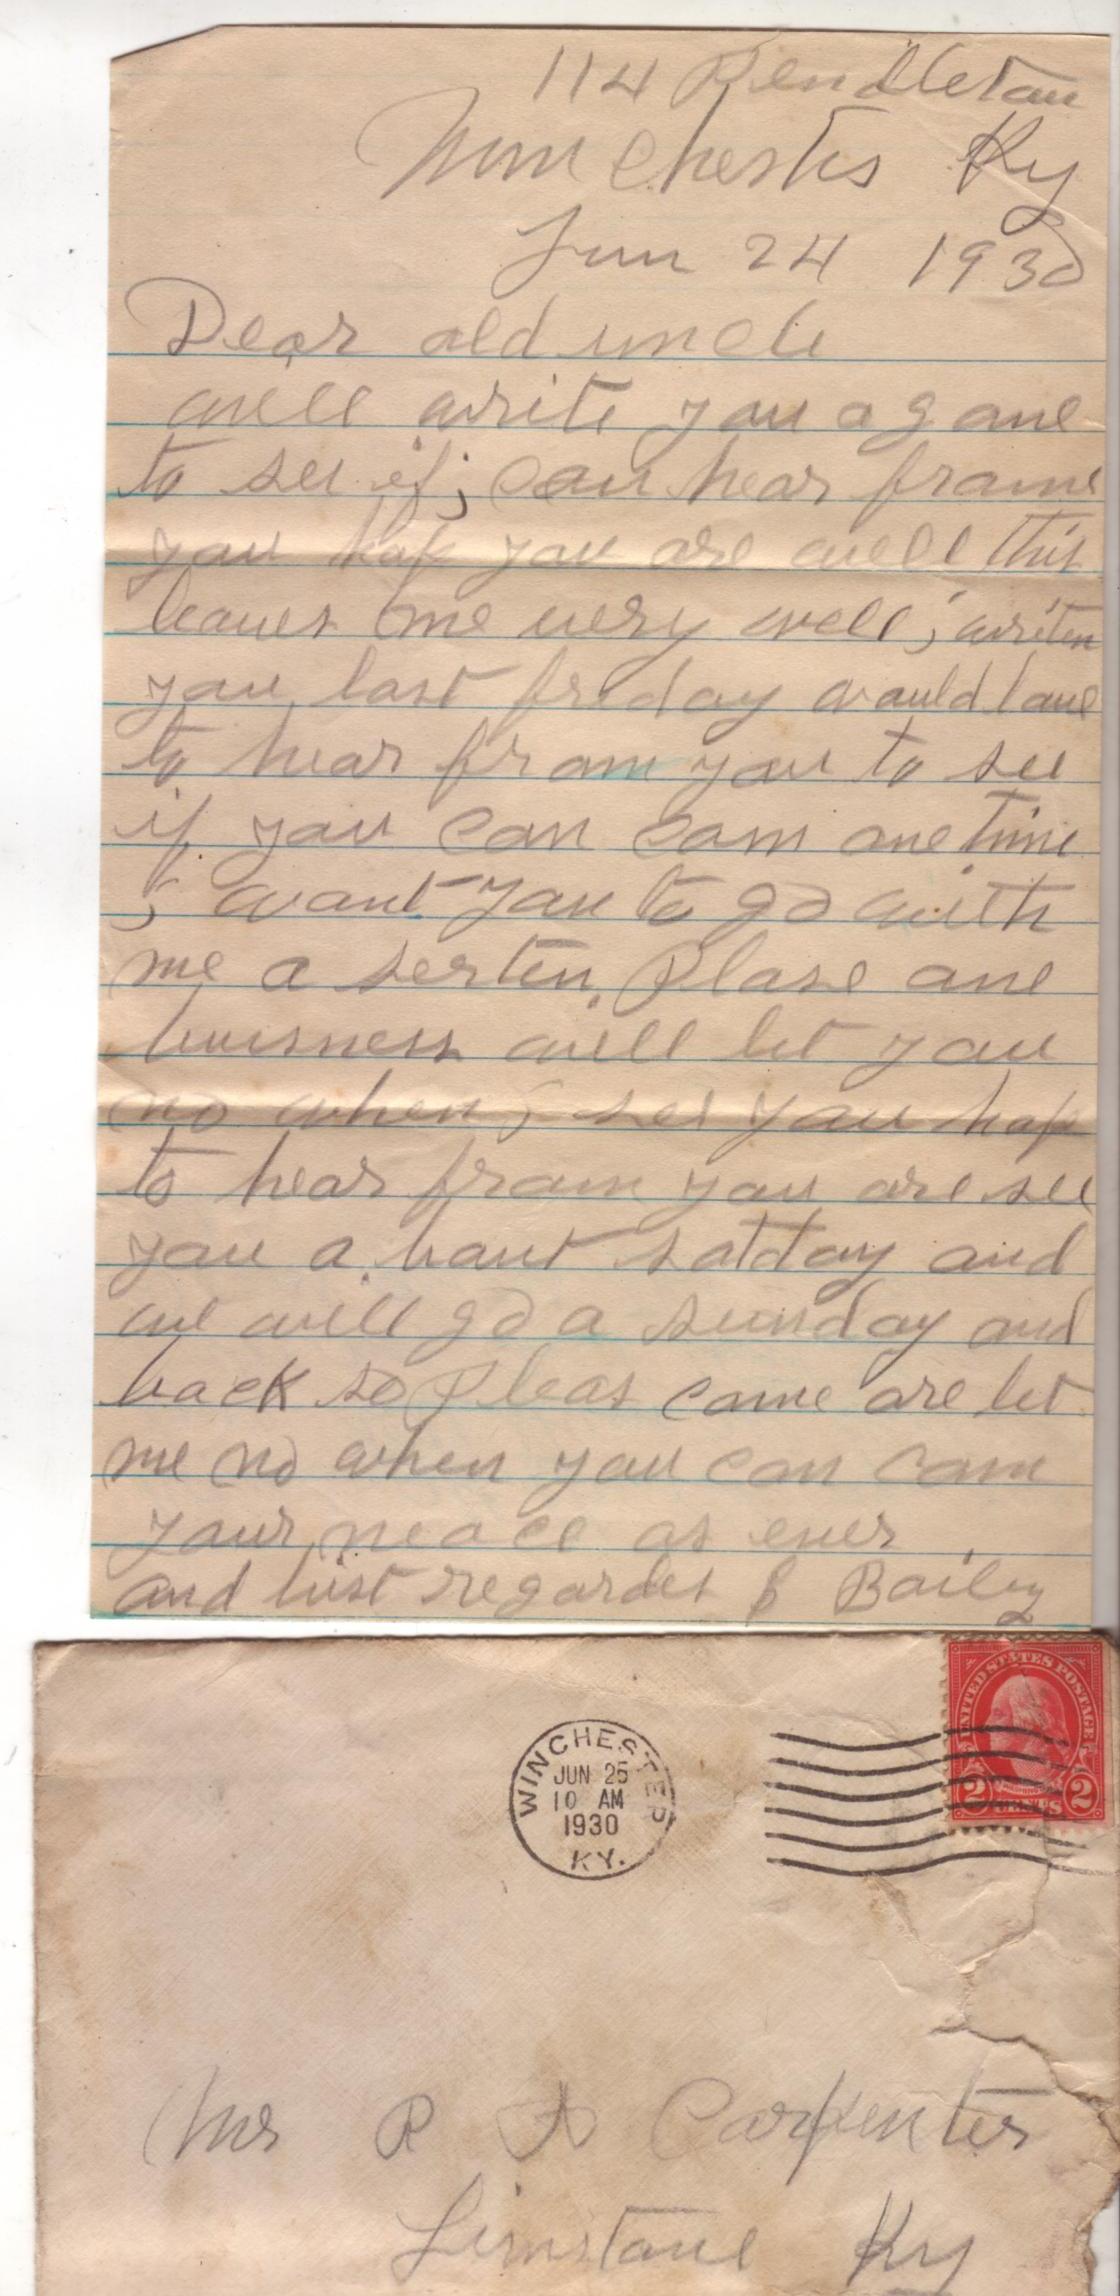 114 Pendleton
Winchester Ky
Jun 24 1930
Dear old uncle
will write you agane
to see if i can hear frome
you hop you are well this
leaves me very well i writen
you last friday would love
to hear from you to see
if you can com one time
i want you to go with
me a serten plase one
buisness will let you
no when i see you hop
to hear from you are see
you a bout satday and
we will go a sunday and
back so pleas come are let
me no when you can come
your neace as ever
and bist regardes B Bailey
UNITED STATES POSTAGE
2 CENTS 2
WINCHESTER
JUN 25
10 AM
1930
KY.
Mr R A Carpenter
Limstone Ky